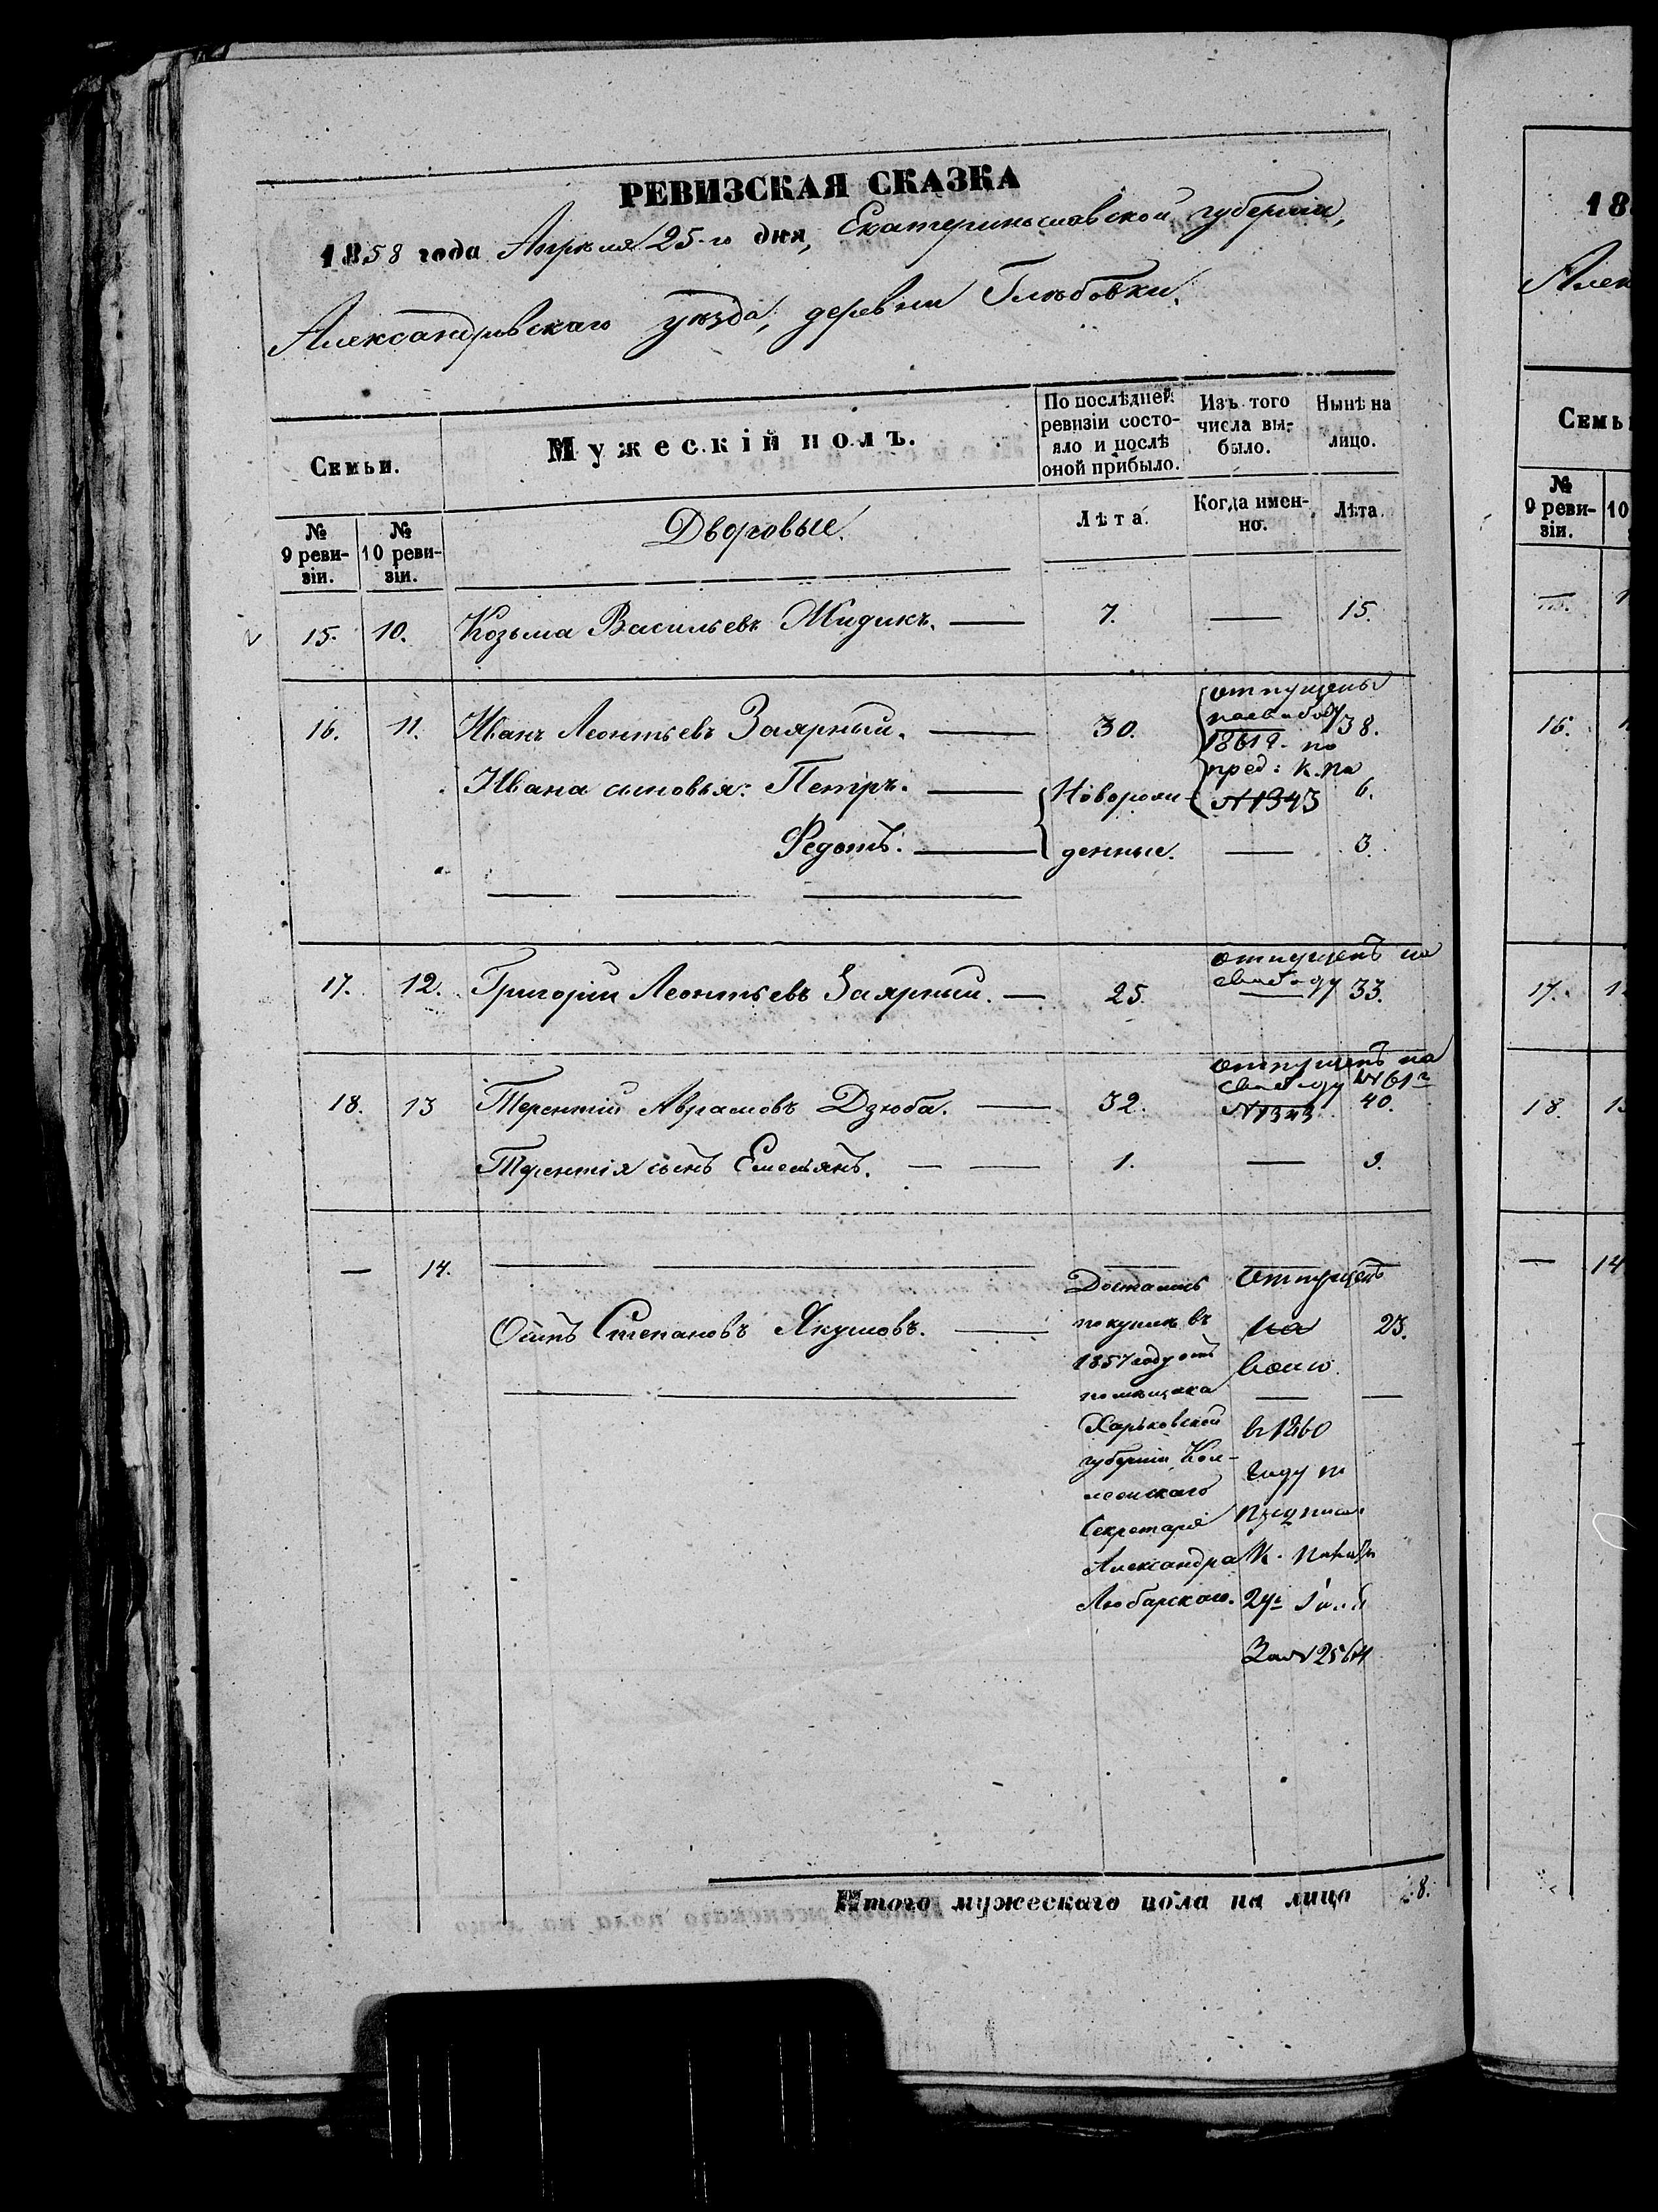 РЕВИЗСКАЯ СКАЗКА
1858 года Апреля 25-го дня, Екатеринославской губернии,
Александровскаго уезда, деревни Глебовки.
Семьи.
Мужескій полъ.
По послѣдней ревизіи состояло и послѣ оной прибыло.
Изъ того числа выбыло.
Нынѣ на лицо.
№ 9 ревизіи.
№ 10 ревизіи.
Дворовые.
Лѣта.
Когда именно.
Лѣта.
15. 10. Козьма Васильевъ Жидикъ. — 7. — 15.
16. 11. Иванъ Леонтьевъ Заярный. — 30. отпущены на свободу 1861 г. по пред: К. Па №1343 38.
Ивана сыновья: Петръ. — Новорож- 6.
Федотъ. — денные. — 3.
17. 12. Григорій Леонтьевъ Заярный. — 25. отпущенъ на свободу 33.
18. 13 Терентій Аврамовъ Дзюба. — 32. отпущенъ на свободу 61 г №1343 40.
Терентія сынъ Емельянъ. — 1. — 9.
— 14.
Осипъ Степановъ Якушовъ. — 23.
Достался
покупкою въ
1857 году отъ
помещика
Харьковской
губерніи Кол-
лежскаго
Секретаря
Александра
Любарскаго.
Отпущенъ
на
волю
въ 1860
году по
предпис.
К. Палаты
За № 2564
Итого мужескаго пола на лицо 8.
18
Алек
Семьи
№ 9 ревизіи.
10
15.
16.
17.
18.
— 14